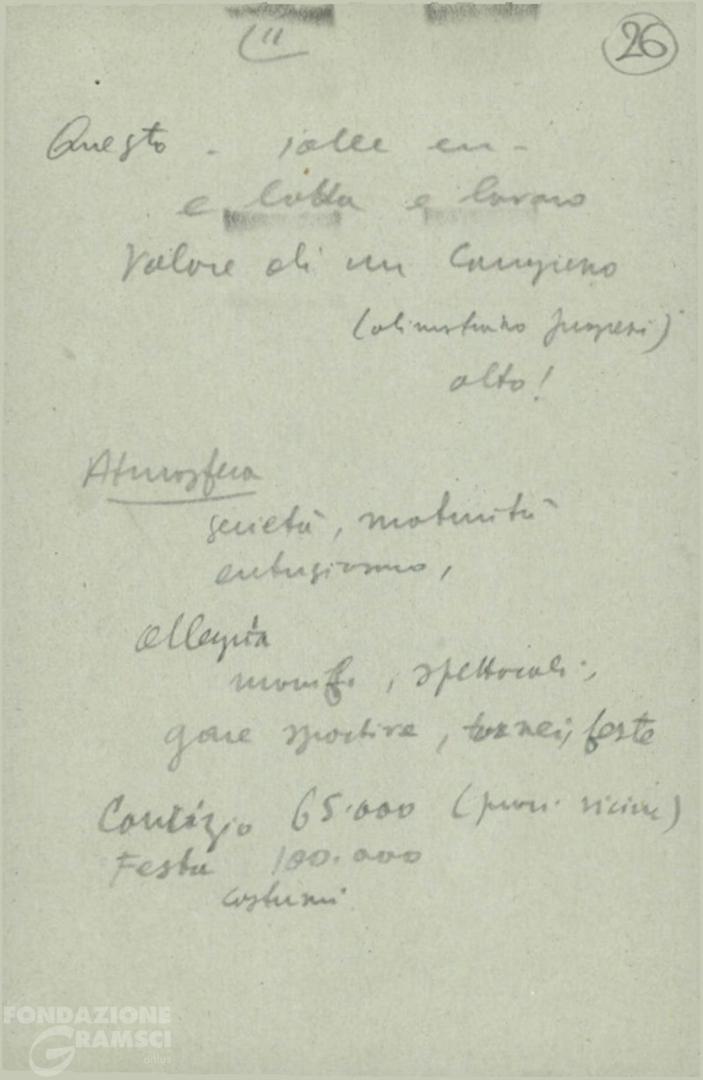 26
Questo -
e lotta e lavoro
Valore di un Congresso
alto!
Atmosfera
serietà, maturità
entusiasmo,
allegria
manif., spettacoli,
gare sportive, tornei, feste
Comizio 65.000 (prov. vicine)
Festa 100.000
costumi
FONDAZIONE
GRAMSCI
onlus